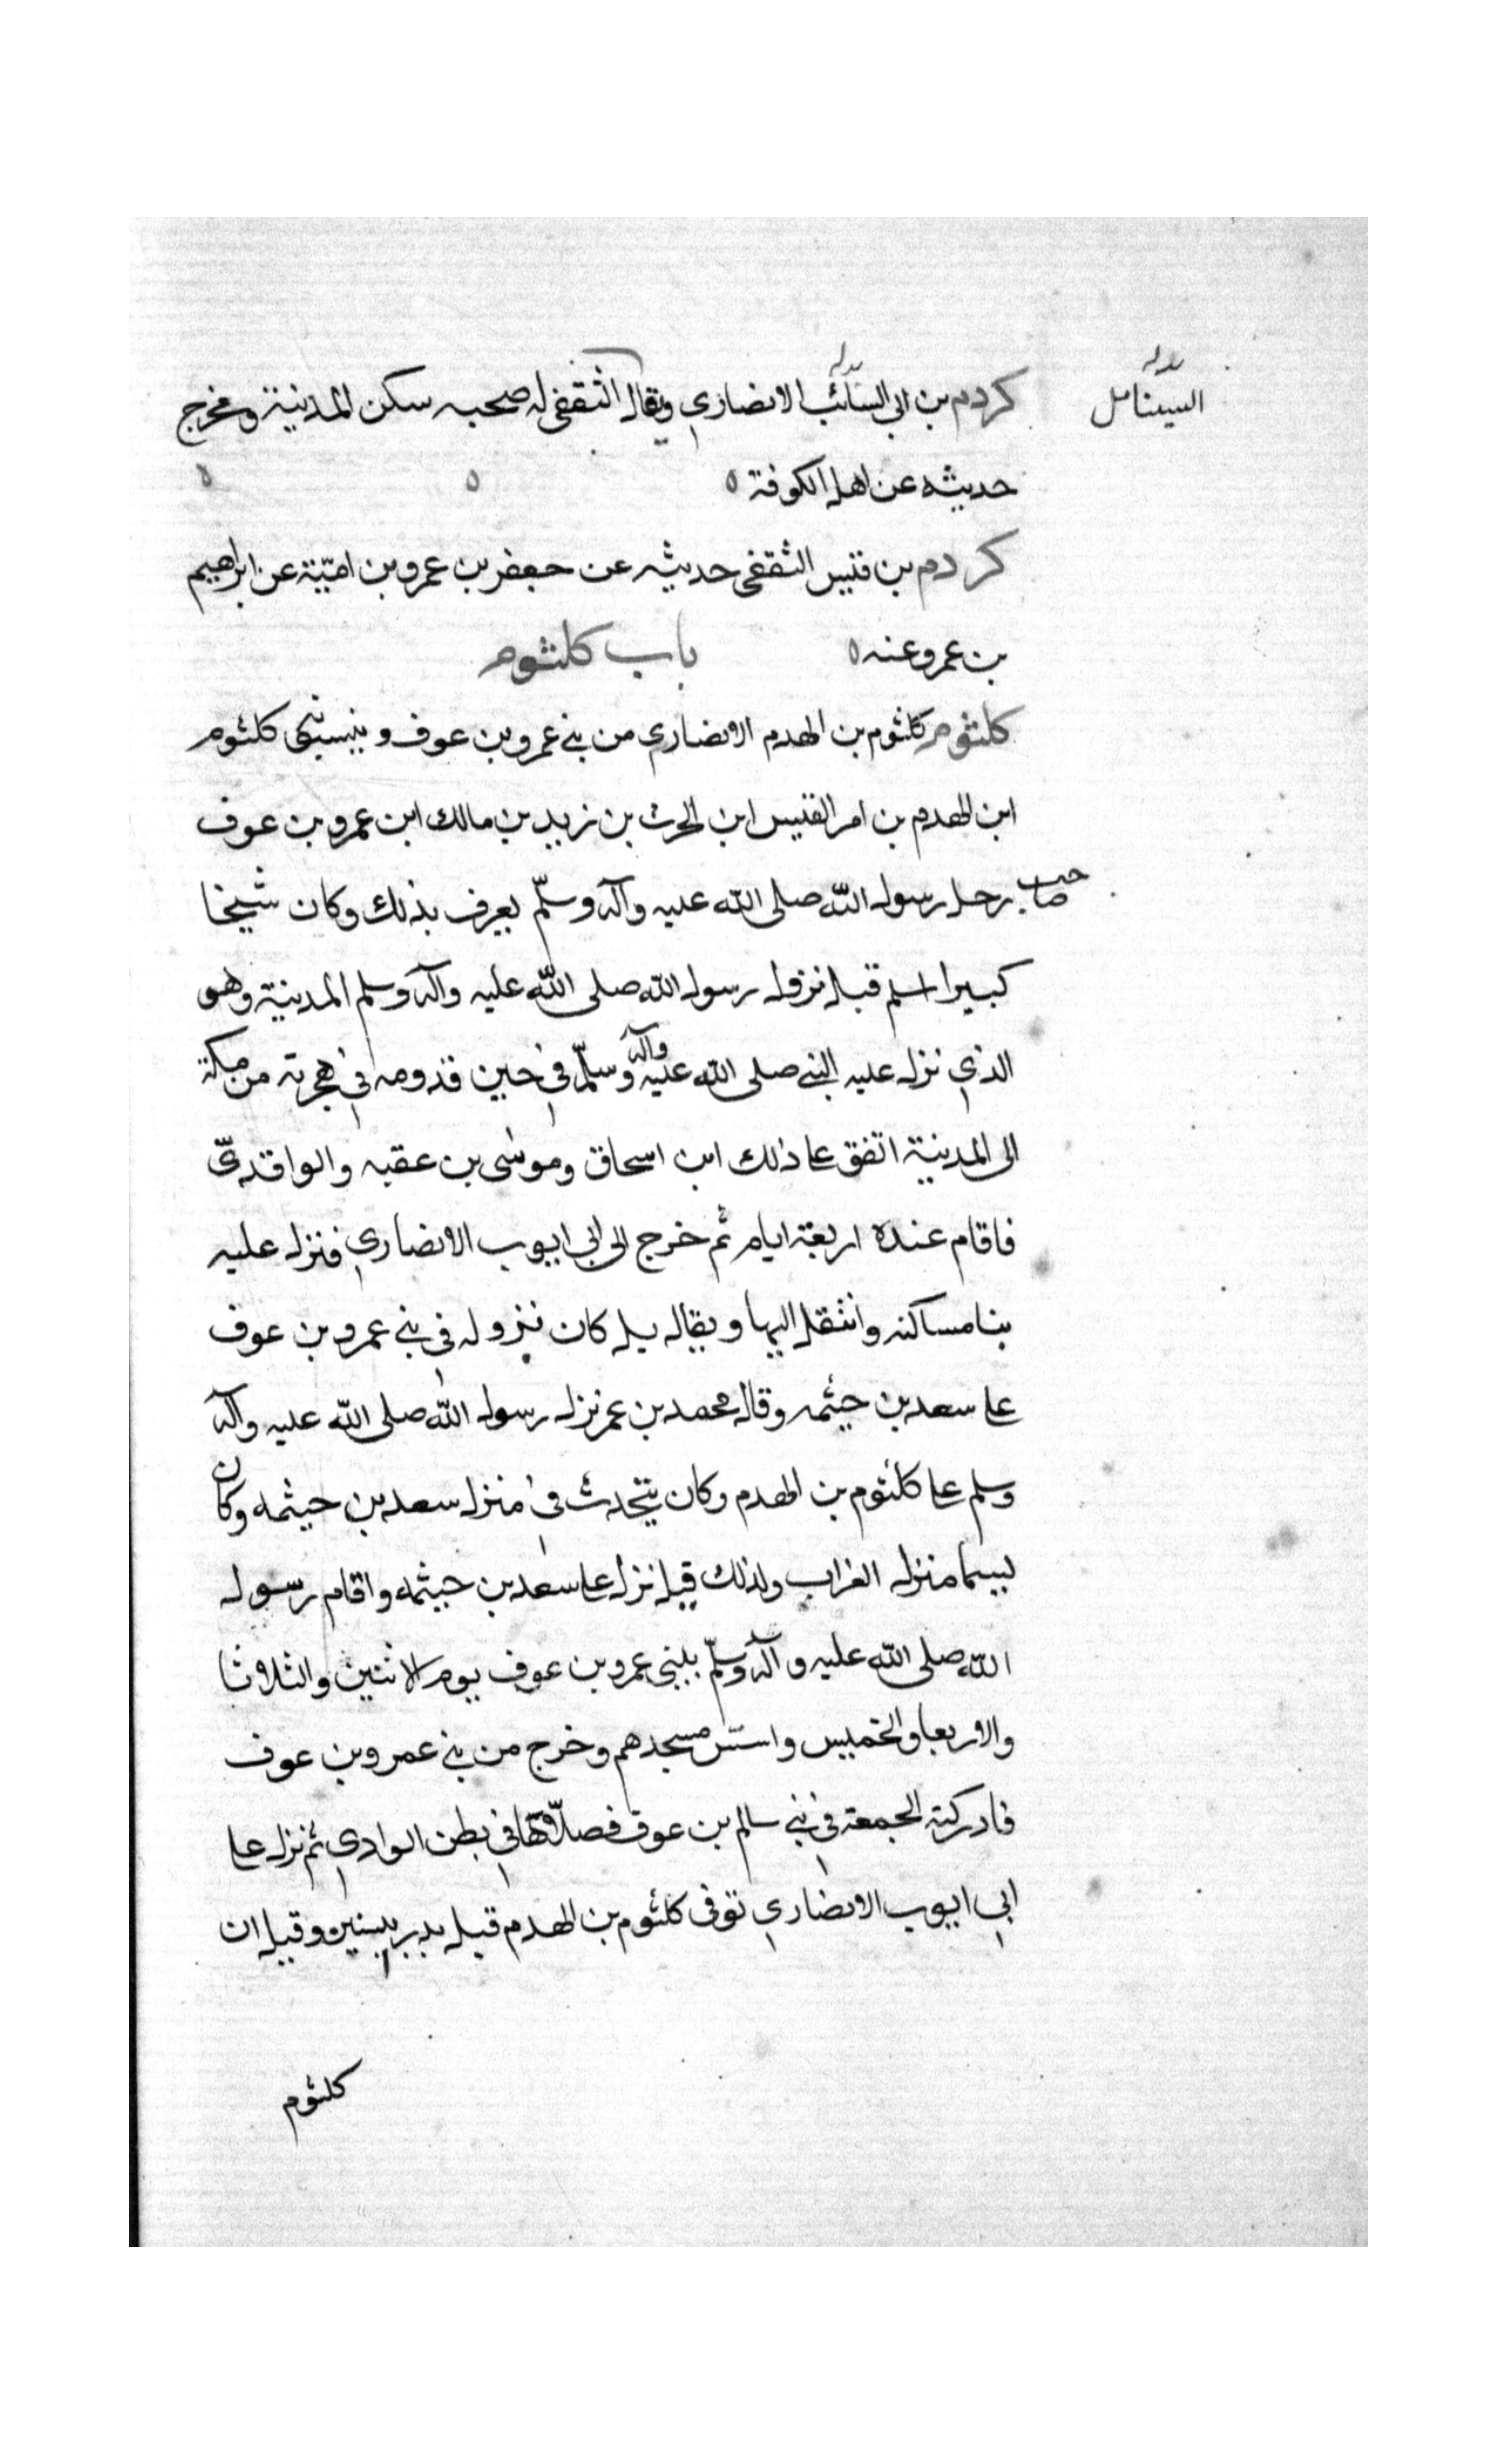 السنابل
كردم بن ابي السائب الانصاري ويقال الثقفي له صحبه سكن المدينة ومخرج
حديثه عن اهل الكوفة ه ه ه
كردم بن قيس الثقفى حديثه عن جعفر بن عمرو بن امية عن ابراهيم
بن عمرو عنه ه باب كلثوم
كلثوم كلثوم بن الهدم الانصاري من بني عمرو بن عوف و كلثوم
ابن الهدم بن امر القيس ابن الحرث بن زيد بن مالك ابن عمرو بن عوف
صاحب رحل رسول الله صلى الله عليه وآله وسلّم يعرف بذلك وكان شيخا
كبيرا اسلم قبل نزول رسول الله صلى الله عليه وآله وسلم المدينة وهو
الذي نزل عليه النبي صلى الله عليه وآله وسلّم في حين قدومه في هجرته من مكة
الى المدينة اتفق على ذلك ابن اسحاق وموسى بن عقبه والواقديّ
فاقام عنده اربعة ايام ثم خرج الى ابي ايوب الانصاري فنزل عليه
بنا مساكنه وانتقل اليها ويقال بل كان نزوله في بني عمرو بن عوف
على سعد بن خيثمه وقال محمد بن عمر نزل رسول الله صلى الله عليه وآله
وسلم على كلثوم بن الهدم وكان يتحدث في منزل سعد بن خيثمه وكان
يسما منزل العزاب ولذلك قيل نزل على سعد بن خيثمه واقام رسول
الله صلى الله عليه وآله وسلّم ببني عمرو بن عوف يوم الاثنين والثلاثا
والاربعا والخميس واسس مسجدهم وخرج من بني عمرو بن عوف
فادركته الجمعة في بني سالم بن عوف فصلّاها في بطن الوادي ثم نزل على
ابي ايوب الانصاري توفى كلثوم بن الهدم قبل بدر وقيل ان
كلثوم